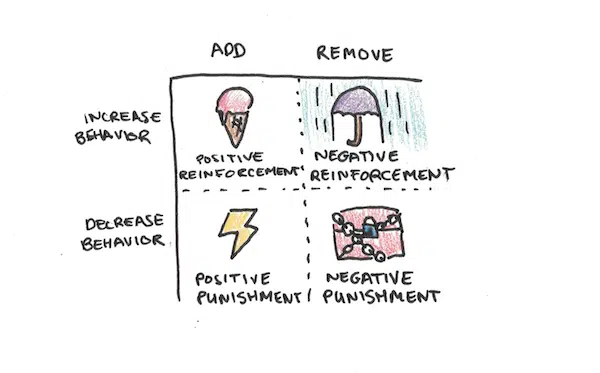 ADD REMOVE
INCREASE
BEHAVIOR
POSITIVE
REINFORCEMENT
NEGATIVE
REINFORCEMENT
DECREASE
BEHAVIOR
POSITIVE
PUNISHMENT
NEGATIVE
PUNISHMENT